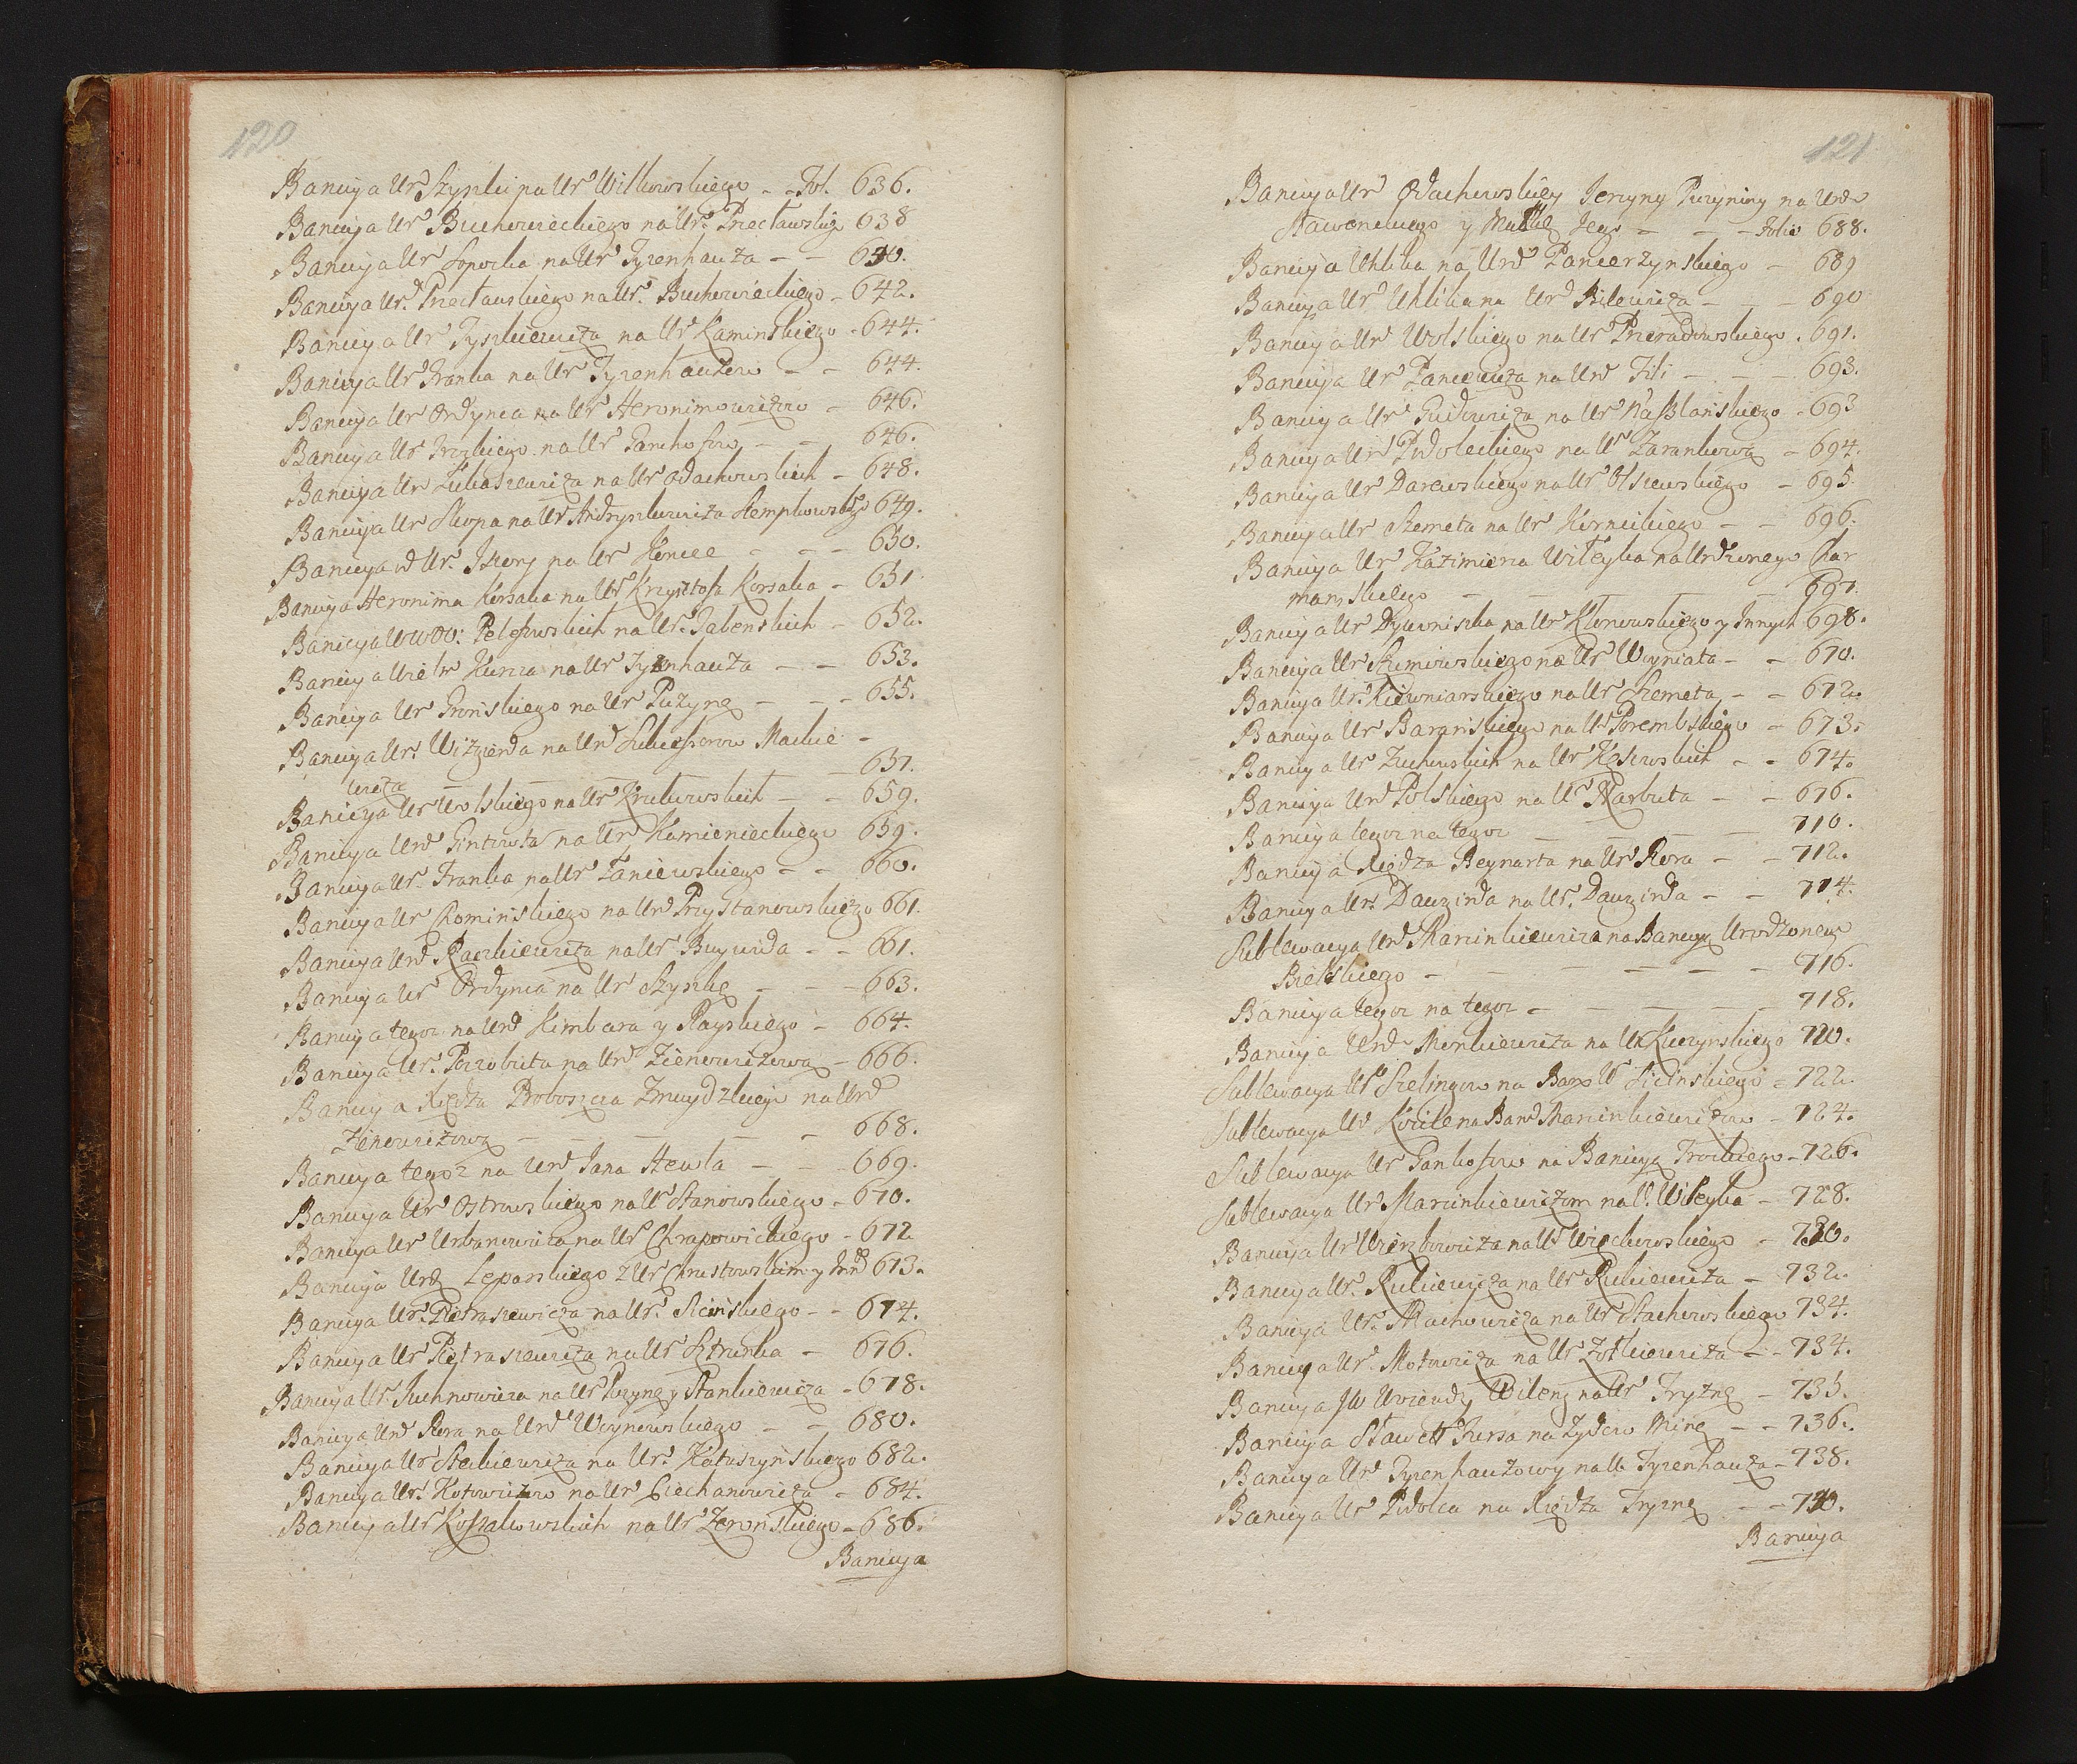 120
Banicya Ur. Szynki na Ur Wilkowskiego - - Fol. 636.
Banicya Ur Buchowieckiego na Ur. Przecławskig 638
Banicya Ur Sopocka na Ur Tyzenhauza - - 640.
Banicya Ur. Przecławskiego na Ur. Buchowieckiego - 642.
Banicya Ur Tyszkiewicza na Ur Kaminskiego - 644.
Banicya Ur Franka na Ur Tyzenhauzow - - 644.
Banicya Ur Ordynca na Ur Heronimowiczow - 646.
Banicya Ur Trockiego na Ur - - 646.
Banicya Ur Łukaszewicza na Ur Odachowskich - 648.
Banicya Ur Skopa na Ur Andrzyskiewicza Stempkowskgo 649.
Banicya od Ur. Iskory na Ur Koncee - - - 650.
Banicya Heronima Korsaka na Ur Krzysztofa Korsaka - 651
Banicya UrWWW: na Ur. Tabenskich - 652.
Banicya Wielr Kunca na Ur Tyzenhauza - - 653.
Banicya Ur Gronskiego na Ur Puzynę - - - 655.
Banicya Ur Wizgierda na Urd Sukcessorow Mackie -
wicza - - - - 657.
Banicya Ur Wolskiego na Ur Krukowskich - - 659.
Banicya Urd Gintowta na Ur Kamienieckiego 659.
Banicya Ur. Franka na Ur Taniewskiego - - 660.
Banicya Ur Kominskiego na Urd Przystanowskiego 661.
Banicya Urd Raczkiewicza na Ur. Buywida - - 661.
Banicya Ur Ordynca na Ur Szynkę - - - 663.
Banicya tegoz na Urd Kimbara y Rayskiego - 664.
Banicya Ur. Poczobuta na Urd Zienowiczową - 666.
Banicya Xiędza Proboszcza Zmuydzkiego na Urd
Zenowiczową - - - - 668.
Banicya tegoz na Urd Jana Hewta - - - 669.
Banicya Ur Ostrowskiego na Ur Stanowskiego - 670.
Banicya Ur Urbanowicza na Ur Chrapowickiego - 672
Banicya Urd Leparskiego z Ur Chrustowskim y Innd 673.
Banicya Ur. Pietraszewicza na Ur. Sicinskiego - - 674.
Banicya Ur Pietraszewicza na Ur Sztrunka - 676.
Banicya Ur. Juchnowicza na Ur Puzynę y Stankiewicza - 678.
Banicya Urd Rora na Urd Woynowskiego - - 680.
Banicya Ur Steckiewicza na Ur. Katuszynskiego 682.
Banicya Ur. Kotowiczow na Ur Ciechanowicza - 684.
Banicya Ur Kossakowskich na Ur Zeronskiego - 686.
Banicya
121
Banicya Ur Odachowskiey Jerzyny Puzyniny na Urd
y Matkę Jego - - - Folio 688.
Banicya Uhlika na Urd Pancerzynskiego - 689
Banicya Ur Uhlika na Urd Bilewicza - - - 690
Banicya Ur Wolskiego na Ur Przeradowskiego . 691.
Banicya Ur Pancewicza na Urd Fili - - - 693.
Banicya Ur Gudowicza na Ur Kasslanskiego - 693
Banicya Urd Podoleckiego na Ur Zarankową - 694.
Banicya Ur Darewskiego na Ur Olszewskiego - 695.
Banicya Ur Szemeta na Ur Kornickiego - - 696.
Banicya Ur Kazimierza Witeyka na Urdzonego Char
manskiego - - - - - 697.
Banicya Ur Dylewniszka na Ur Klonowskiego y Innych 698.
Banicya Ur Szumowskiego na Ur Woyniata - - 670.
Banicya Ur Kiewniarskiego na Ur Szemeta - - 672.
Banicya Ur Baranskiego na Ur Porembskiego - 673.
Banicya Ur Zuchowskich na Ur Kossowskich - - 674.
Banicya Urd Polskiego na Ur Narbuta - - 676.
Banicya tegoz na tegoz - - - - 710.
Banicya Xiędza Reynarta na Ur Rora - - 712.
Banicya Ur. Dauzirda na Ur. Dauzirda - - 714.
Sublewacya Urd Marcinkiewicza na Banicyą Urodzonego
Bielskiego - - - - - - 716.
Banicya tegoz na tegoz - - - - - 718.
Banicya Urd Mienkiewicza na Ur Kuczynskiego 720.
Sublewacya Ur Szelingow na Ban Ur Sicinskiego - 722.
Sublewacya Ur na Band Marcinkiewiczow - 724.
Sublewacya Ur na Banicyą Trockiego - 726.
Sublewacya Ur Marcinkiewiczom na U. Witeyka - 728.
Banicya Ur Wierzbowicza na Ur Więckowskiego - 730.
Banicya Ur. Rukiewicza na Ur Rukiewicza - 732.
Banicya Ur. Machowicza na Ur Stachowskiego 734.
Banicya Ur. Motowicza na Ur Zotkiewicza - - 734.
Banicya JW Wilenz na Ur Tryznę - 735.
Banicya Sławett Kursa na Zydow Minę - - 736.
Banicya Ur Tyzenhauzowy na U Tyzenhauza - 738.
Banicya Ur Podolca na Xiędza Tryznę - - 740.
Banicya